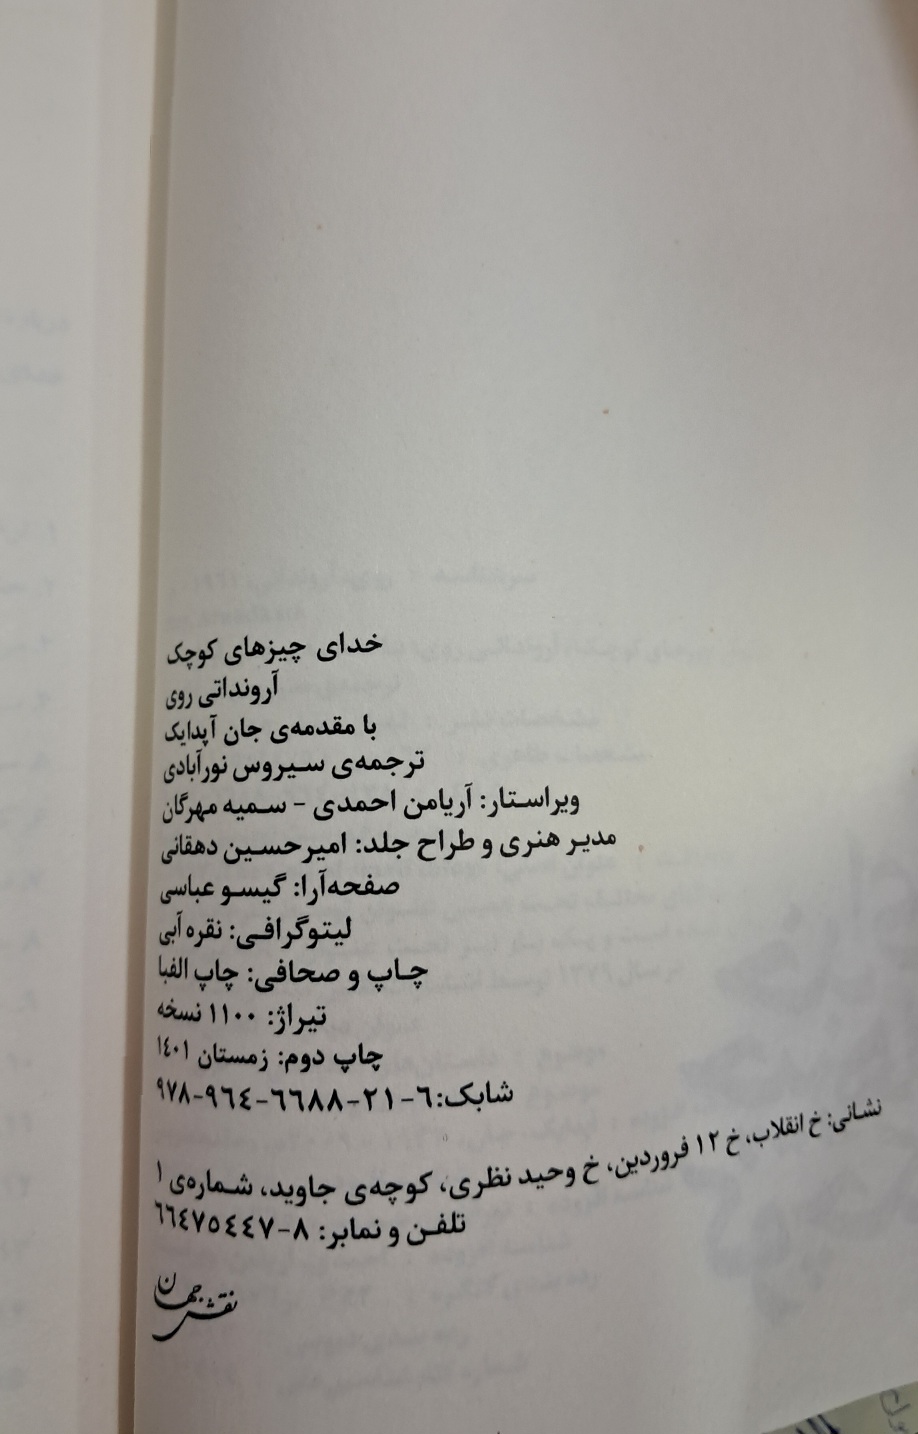 خدای چیزهای کوچک
آرونداتی روی
با مقدمه‌ی جان آپدایک
ترجمه‌ی سیروس نورآبادی
ویراستار: آریامن احمدی - سمیه مهرگان
مدیر هنری و طراح جلد: امیرحسین دهقانی
صفحه‌آرا: گیسو عباسی
لیتوگرافی: نقره آبی
چاپ و صحافی: چاپ الفبا
تیراژ: ۱۱۰۰ نسخه
چاپ دوم: زمستان ۱۴۰۱
شابک:۶-۲۱-۶۶۸۸-۹۶۴-۹۷۸
نشانی: خ انقلاب، خ ۱۲ فروردین، خ وحید نظری، کوچه‌ی جاوید، شماره‌ی ۱
تلفن و نمابر: ۸-۶۶۴۷۵۴۴۷
نقش جهان